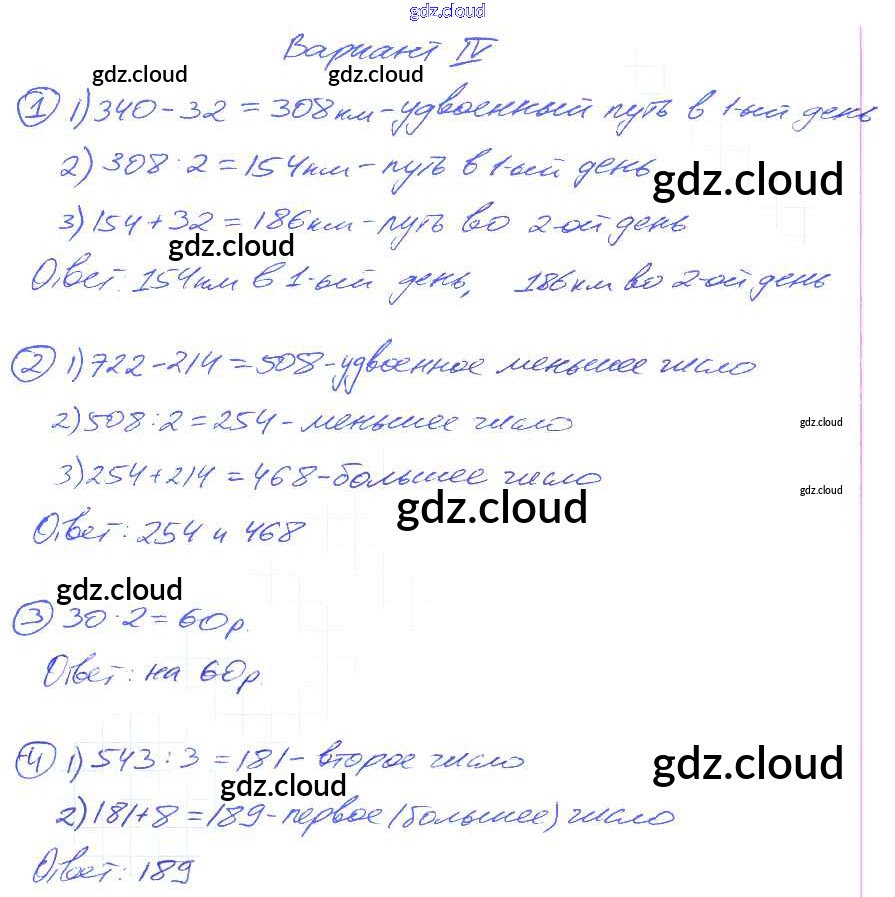 gdz.cloud
Вариант IV
gdz.cloud gdz.cloud
1 1) 340 - 32 = 308 км - удвоенный путь в 1-ый день
2) 308 : 2 = 154 км - путь в 1-ый день
gdz.cloud
3) 154 + 32 = 186 км - путь во 2-ой день
gdz.cloud
Ответ: 154 км в 1-ый день, 186 км во 2-ой день
2 1) 722 - 214 = 508 - удвоенное меньшее число
2) 508 : 2 = 254 - меньшее число
gdz.cloud
3) 254 + 214 = 468 - большее число
gdz.cloud
gdz.cloud
Ответ: 254 и 468
gdz.cloud
3 30 · 2 = 60 р.
Ответ: на 60 р.
4 1) 543 : 3 = 181 - второе число
gdz.cloud
gdz.cloud
2) 181 + 8 = 189 - первое (большее) число
Ответ: 189